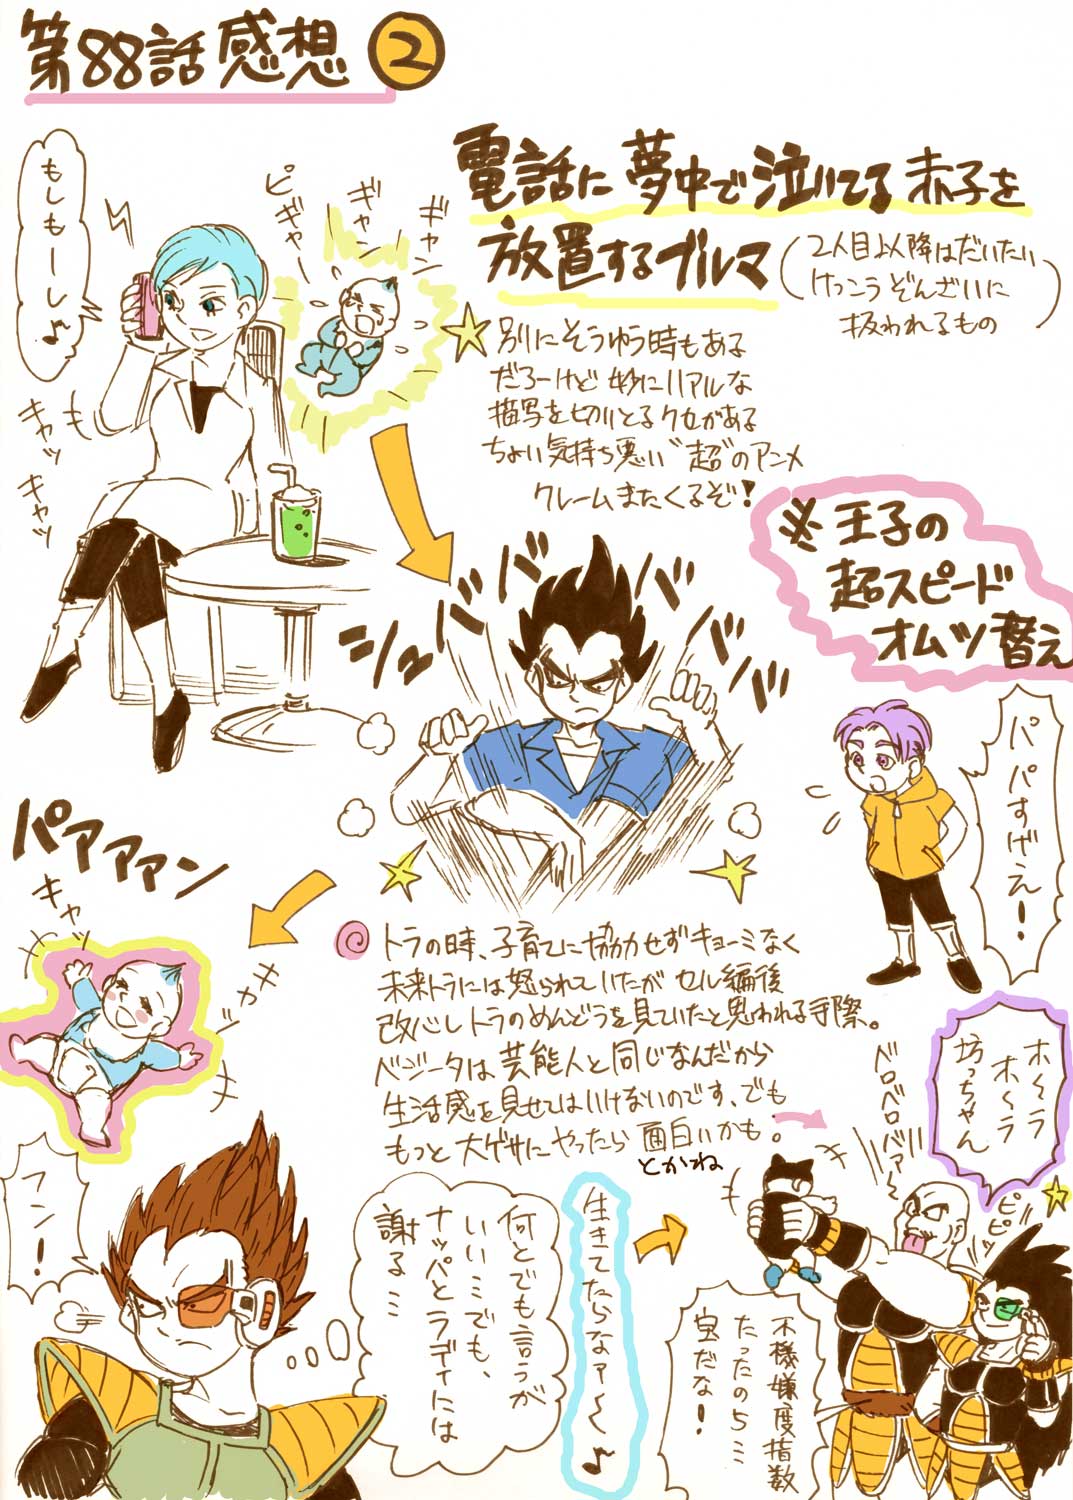 第88話感想 ②
電話に夢中で泣いてる赤子を
放置するブルマ
(2人目以降はだいたい
けっこうぞんざいに
扱われるもの)
もしもーし♪
ピギャー
ギャン
ギャン
キャッ
キャッ
別にそうゆう時もある
だろーけど 妙にリアルな
描写を切りとるクセがある
ちょい気持ち悪い"超"のアニメ
クレームまたくるぞ!
※王子の
超スピード
オムツ替え
シュババババ
パパすげえ!
パアアアン
キャッ
キャッ
トラの時、子育てに協力せずキョーミなく
未来トラには怒られていたが セル編後
改心しトラのめんどうを見ていたと思われる手際。
ベジータは芸能人と同じなんだから
生活感を見せてはいけないのです、でも
もっと大ゲサにやったら面白いかも。
とかね
ホ〜ラ
ホ〜ラ
坊っちゃん
ベロベロバァ〜
ピピッ
フン!
何とでも言うが
いい…でも、
ナッパとラディには
謝る…
生きてたらなァ〜♪
不様嫌度指数
たったの5…
皇だな!